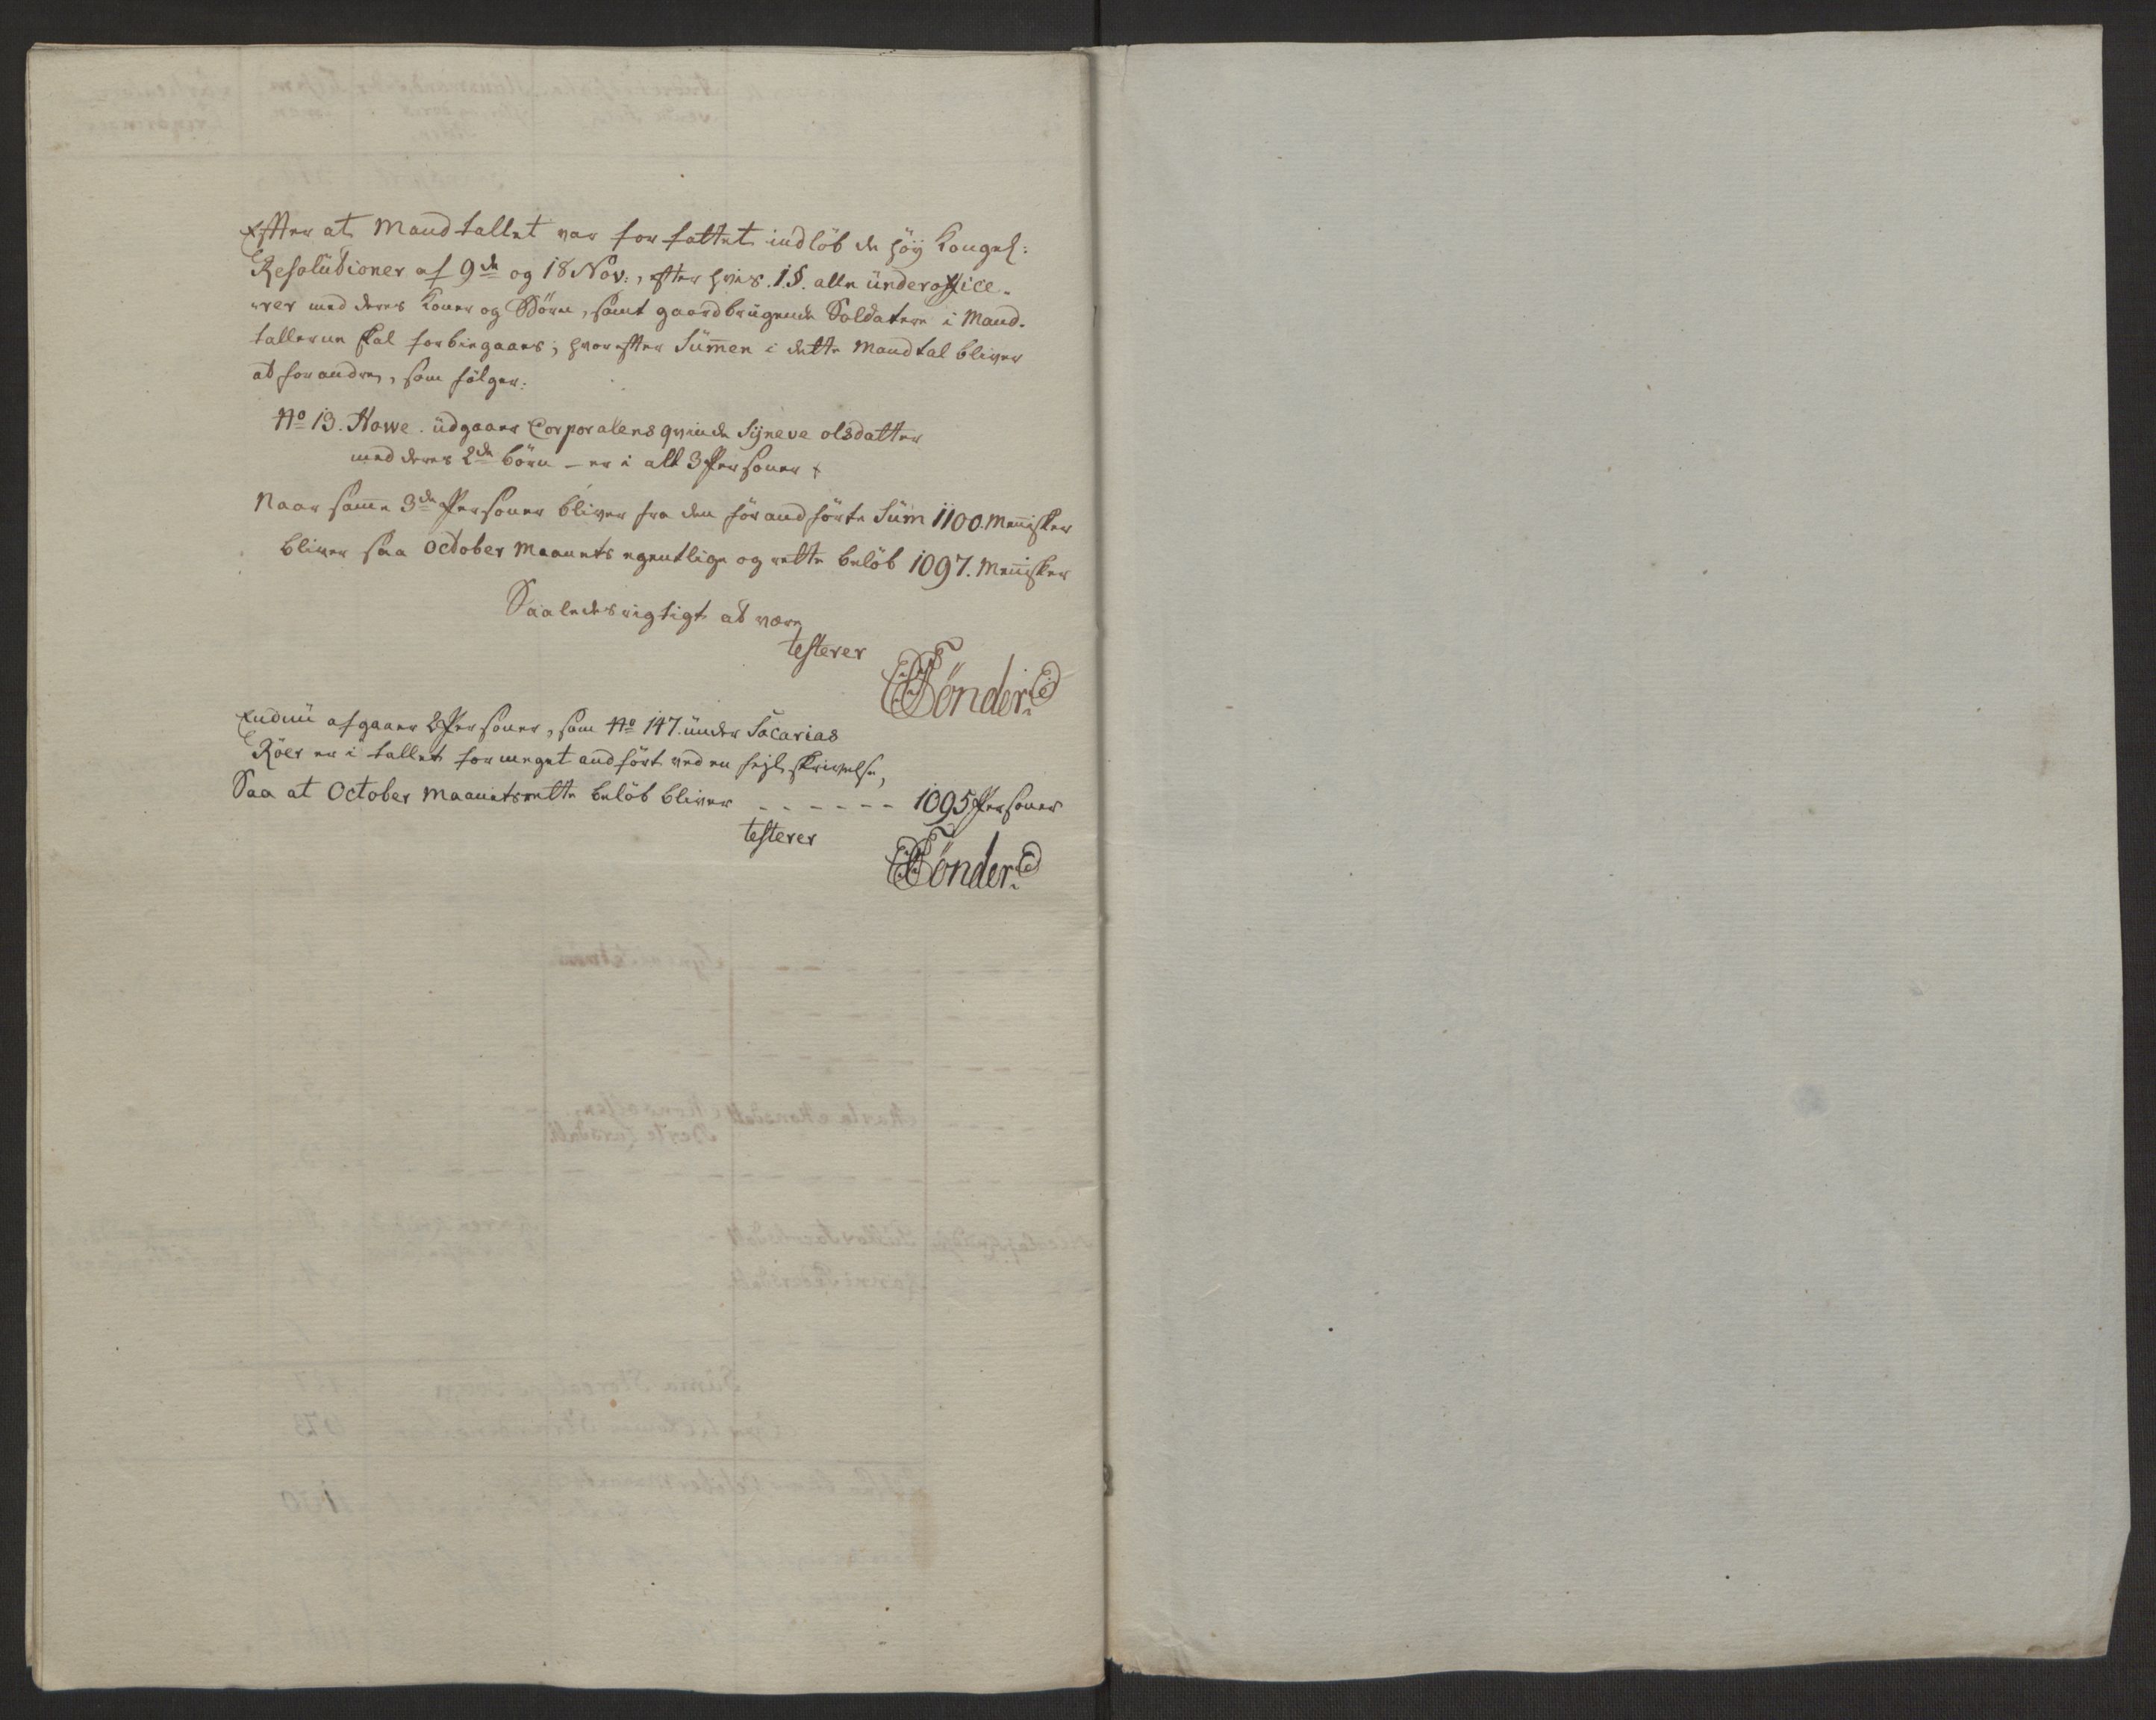 Efter at Mandtallet var forfattet indlöb de höy Kongel:
Resolutioner af 9de og 18 Nov:, efter hvis 1.§. alle underoffice-
-rer med deres Koner og Börn, samt gaardbrugende Soldatere i Mand-
tallerne skal forbiegaaes; hvorefter Summen i dette Mandtal bliver
at forandre, som fölger:
No 13. Howe. udgaaer Corporalens qvinde Syneve olsdatter
med deres 2de börn - er i alt 3 Personer
Naar samme 3de Personer bliver fra den för andförte Sum 1100. Mennisker
bliver saa October Maanets egentlige og rette belöb 1097. Mennisker
Saaledes rigtigt at være
testerer
Tönder
Endnu afgaaer 2 Personer, som No 147. under Sacarias
Röer er i tallet for meget andfört ved en fejl skrivelse,
Saa at October Maanets rette belöb bliver - - - - - - 1095 Personer
testerer
Tönder